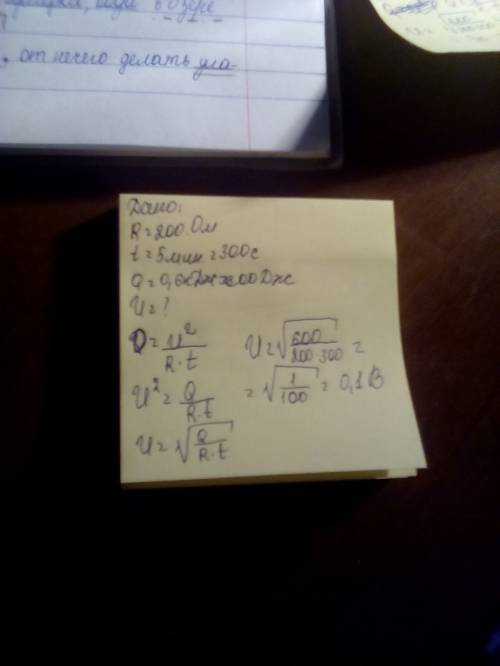 воде в озере
, от нечего делать ула-
Дано:
R=200 Ом
t=5мин.=300с
Q=0,6кДж=600Дж
U=?
Q=U²/R·t
U²=Q/R·t
U=√Q/R·t
U=√600/200·300=
=√1/100=0,1В